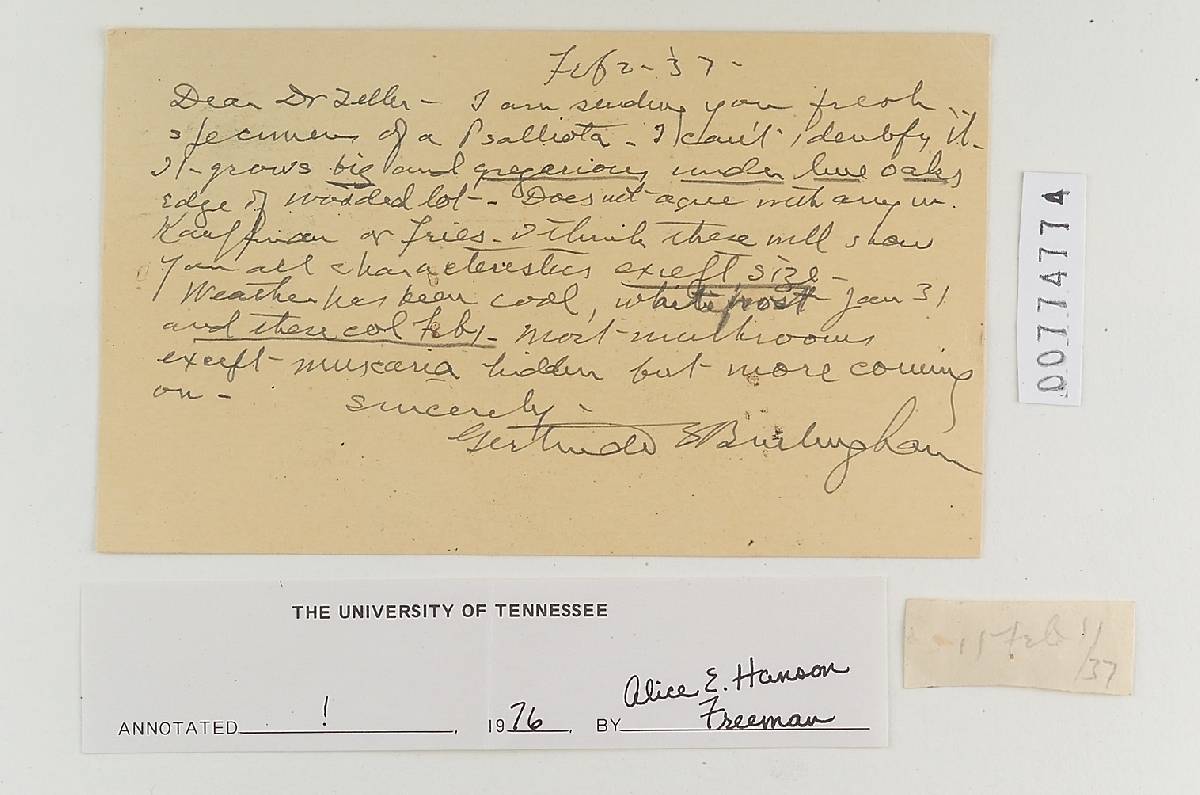 Feb 2 - 37 -
Dear Dr Zeller - I am sending you fresh
specimens of a Psalliota - I can't identify it -
It grows big and gregarious under live oaks
edge of wooded lot - Does not agree with any in
Kauffman or Fries - I think these will show
you all characteristics except size -
Weather has been cool, white frost Jan 31
and these col Feb 1 - Most mushrooms
except muscaria hidden but more coming
on - Sincerely -
Gertrude S Burlingham
00774774
THE UNIVERSITY OF TENNESSEE
ANNOTATED ! , 1976 , BY Alice E. Hanson
Freeman
Feb 11
/37